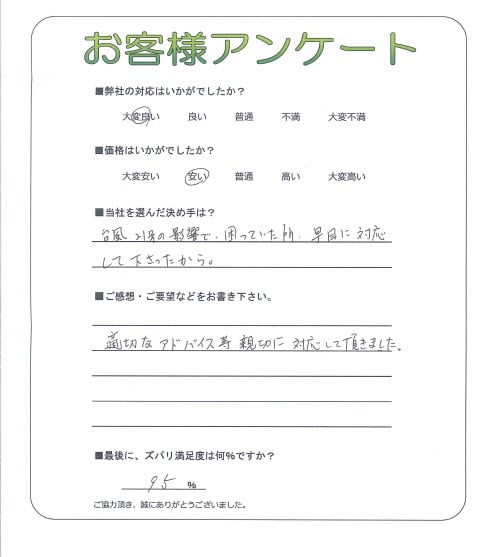 お客様アンケート
■弊社の対応はいかがでしたか?
大変良い 良い 普通 不満 大変不満
■価格はいかがでしたか?
大変安い 安い 普通 高い 大変高い
■当社を選んだ決め手は?
台風21号の影響で、困っていた所、早目に対応
して下さったから。
■ご感想・ご要望などをお書き下さい。
適切なアドバイス等親切に対応して頂きました。
■最後に、ズバリ満足度は何%ですか?
95 %
ご協力頂き、誠にありがとうございました。